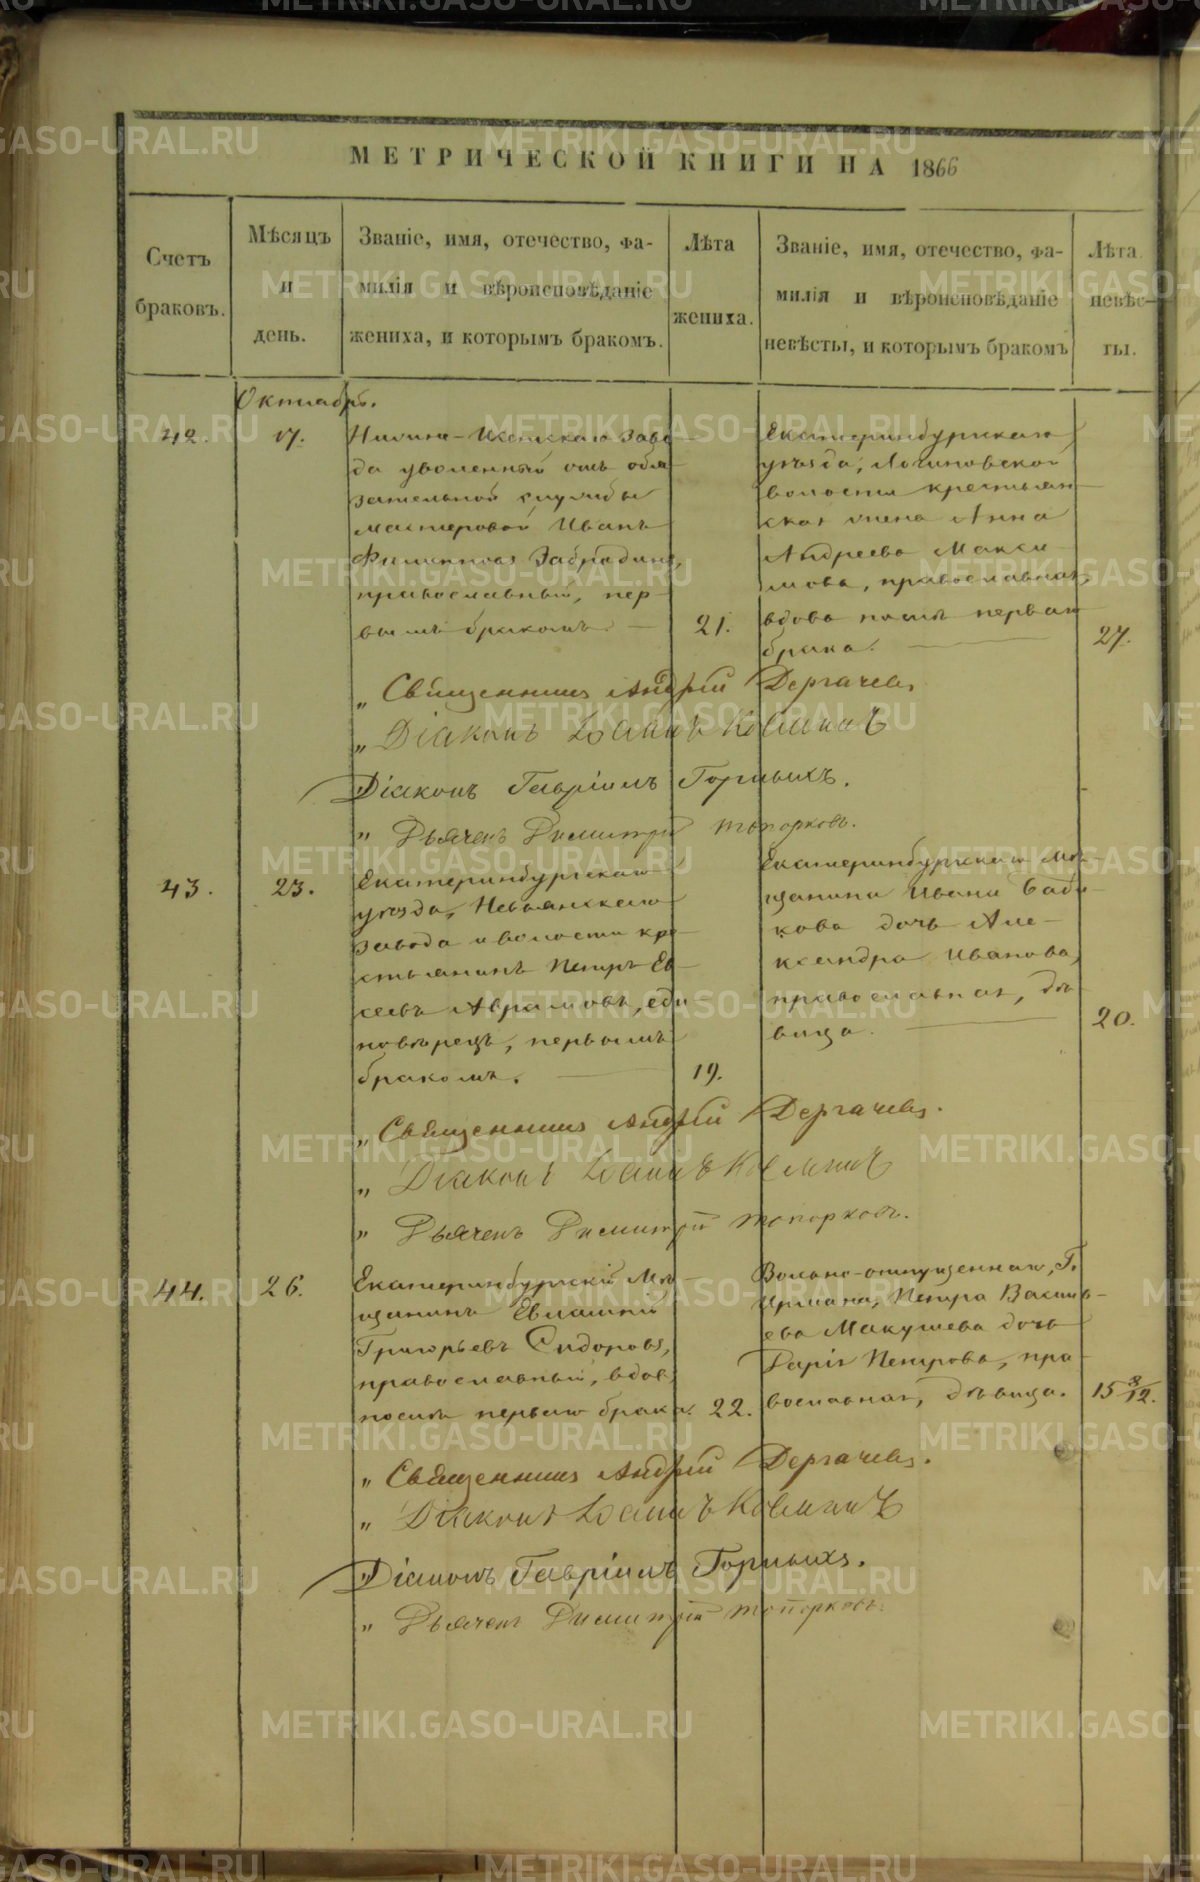 МЕТРИЧЕСКОЙ КНИГИ НА 1866
Счетъ браковъ.
Мѣсяцъ и день.
Званіе, имя, отечество, фа-
милія и вѣроисповѣданіе
жениха, и которымъ бракомъ.
Лѣта жениха.
Званіе, имя, отечество, фа-
милія и вѣроисповѣданіе
невѣсты, и которымъ бракомъ
Лѣта невѣс-
ты.
Октиабрь.
42.
17.
завo-
да уволенный отъ обя-
зательной службы
мастеровой Иванъ
православный, пер-
вымъ бракомъ.
21.
Екатеринбургскаго
уѣзда,
волости крестьян-
ская жена Анна
Андреева Макси-
мова, православная,
вдова послѣ перваго
брака.
27.
„ Священникъ Андрей Дергачевъ
„ Діаконъ Іоаннъ Косминъ
„ Діаконъ Гавріилъ Горныхъ.
„ Дьячекъ Димитрій Топорковъ.
43.
23.
Екатеринбургскаго
уѣзда, Невьянскаго
завода и волости кре-
стьянинъ Петръ Ев-
сеевъ Аврамовъ, еди-
новѣрецъ, первымъ
бракомъ.
19.
Екатеринбургскаго мѣ-
щанина Ивана Баби-
кова дочь Але-
ксандра Иванова,
православная, дѣ-
вица.
20.
„ Священникъ Андрей Дергачевъ.
„ Діаконъ Іоаннъ Косминъ
„ Дьячекъ Димитрій Топорковъ.
44.
26.
Екатеринбургскій мѣ-
щанинъ Евлампій
Григорьевъ Сидоровъ,
православный, вдов.
послѣ перваго брака.
22.
Вольно-отпущеннаго, Г.
Петра Василь-
ева Макушева дочь
Дарія Петрова, пра-
вославная, дѣвица.
15 8/12.
„ Священникъ Андрей Дергачевъ.
„ Діаконъ Іоаннъ Косминъ
„ Діаконъ Гавріилъ Горныхъ.
„ Дьячекъ Димитрій Топорковъ.
METRIKI.GASO-URAL.RU